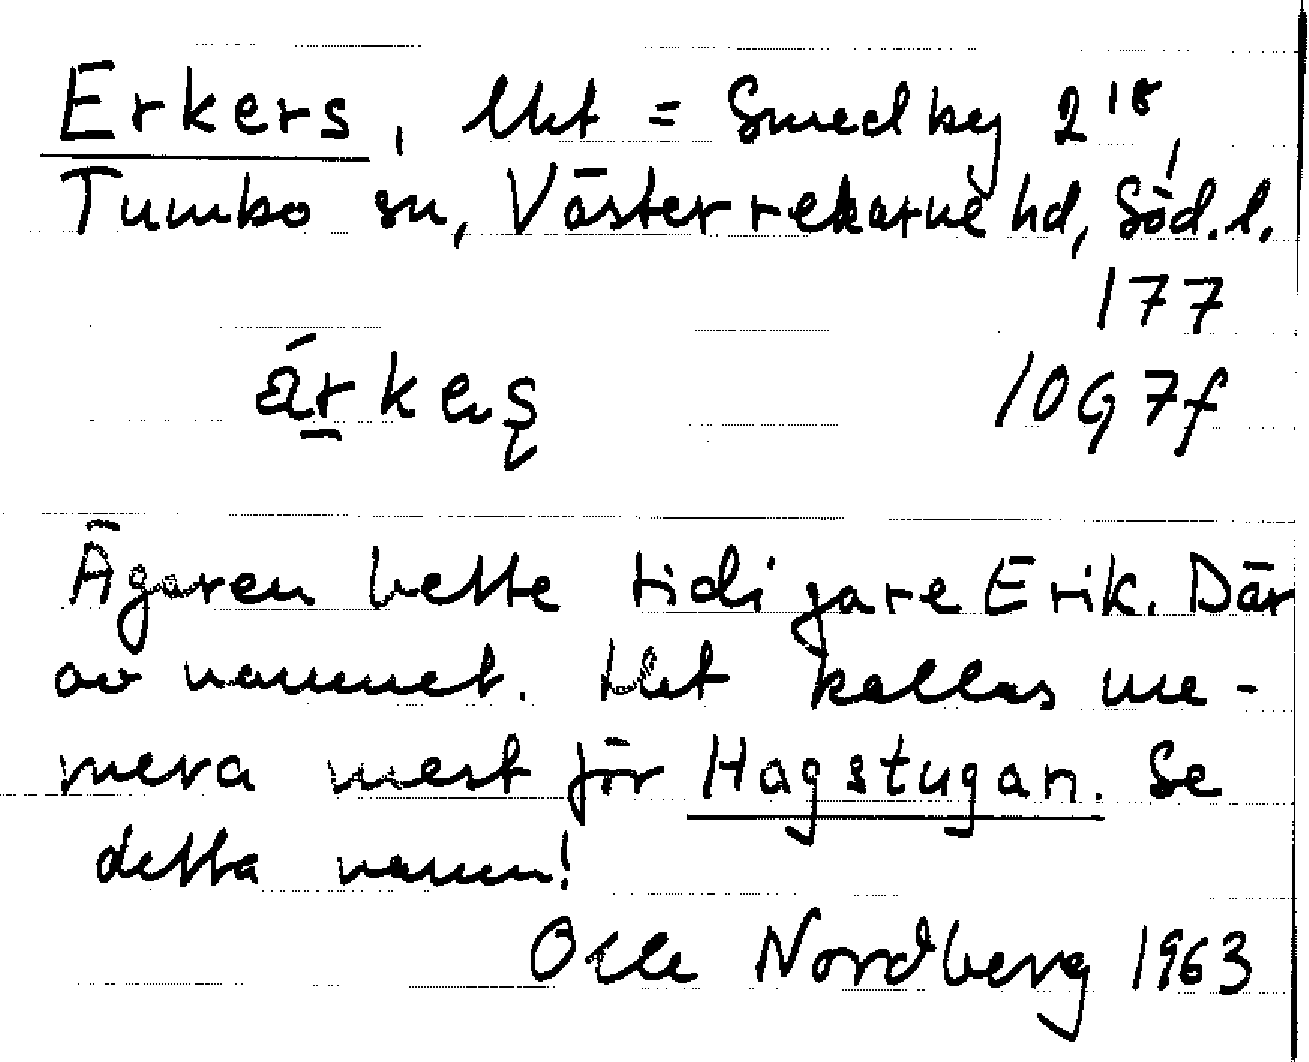 Erkers, lht = Smedby 2¹⁸,
Tumbo sn, Västerrekarne hd, Söd. l.
177
10G7f
Ägaren hette tidigare Erik. Där
av namnet. Lht kallas nu-
mera mest för Hagstugan. Se
detta namn!
Olle Nordberg 1963